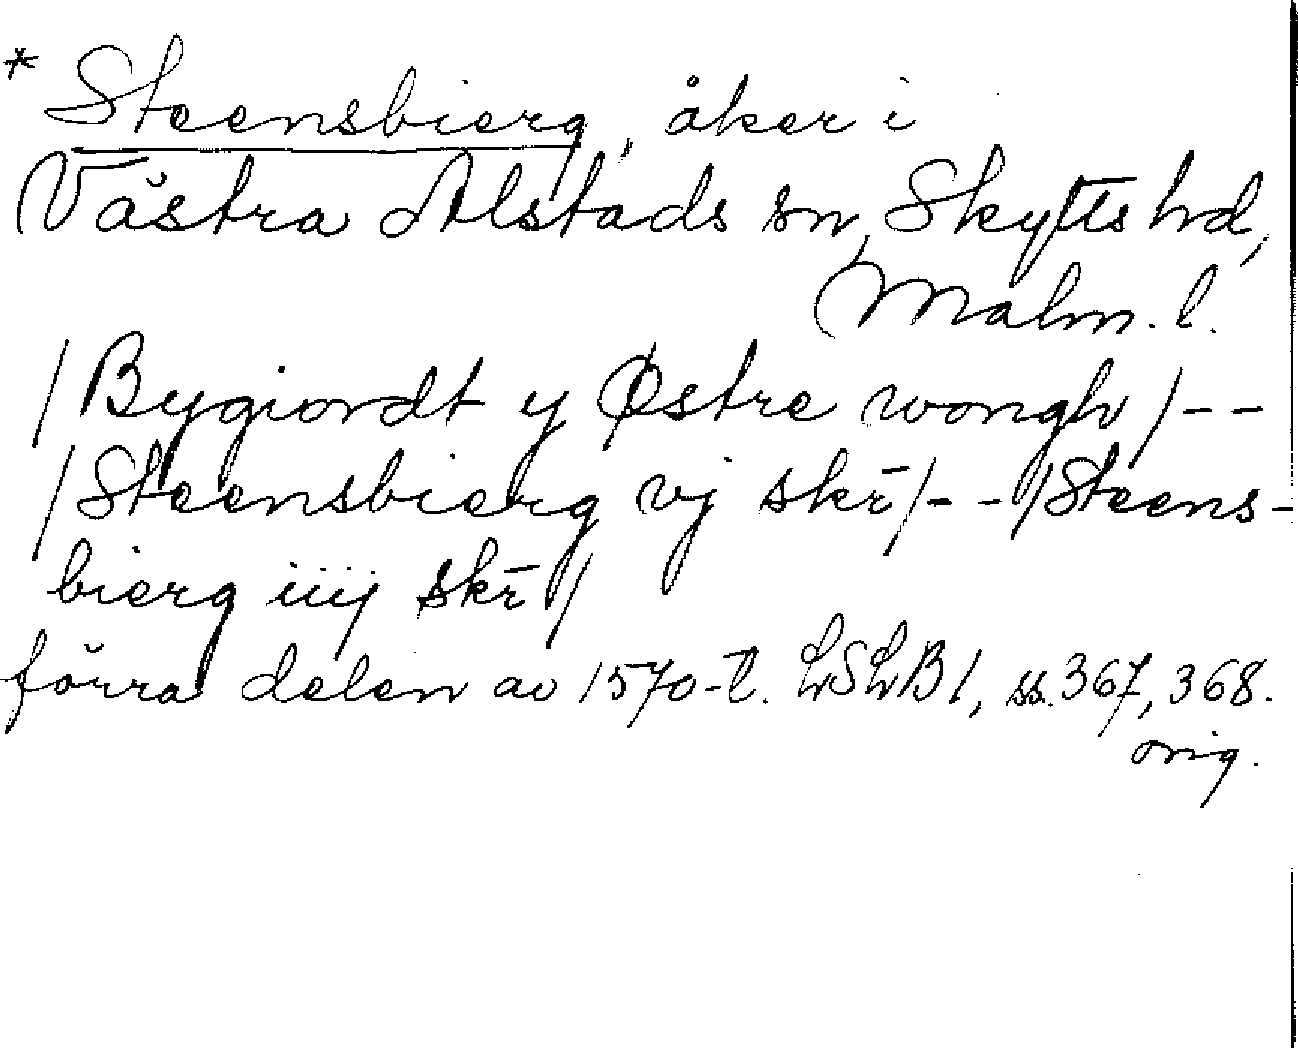 * Steensbierg, åker i
Västra Alstads sn, Skytts hd,
Malm. l.
/Bygiordt y Østre wongh/--
/Steensbierg vj skr̄/--/Steens-
bierg iiij skr̄/
förra delen av 1570-t. LSLB 1, ss. 367, 368.
orig.